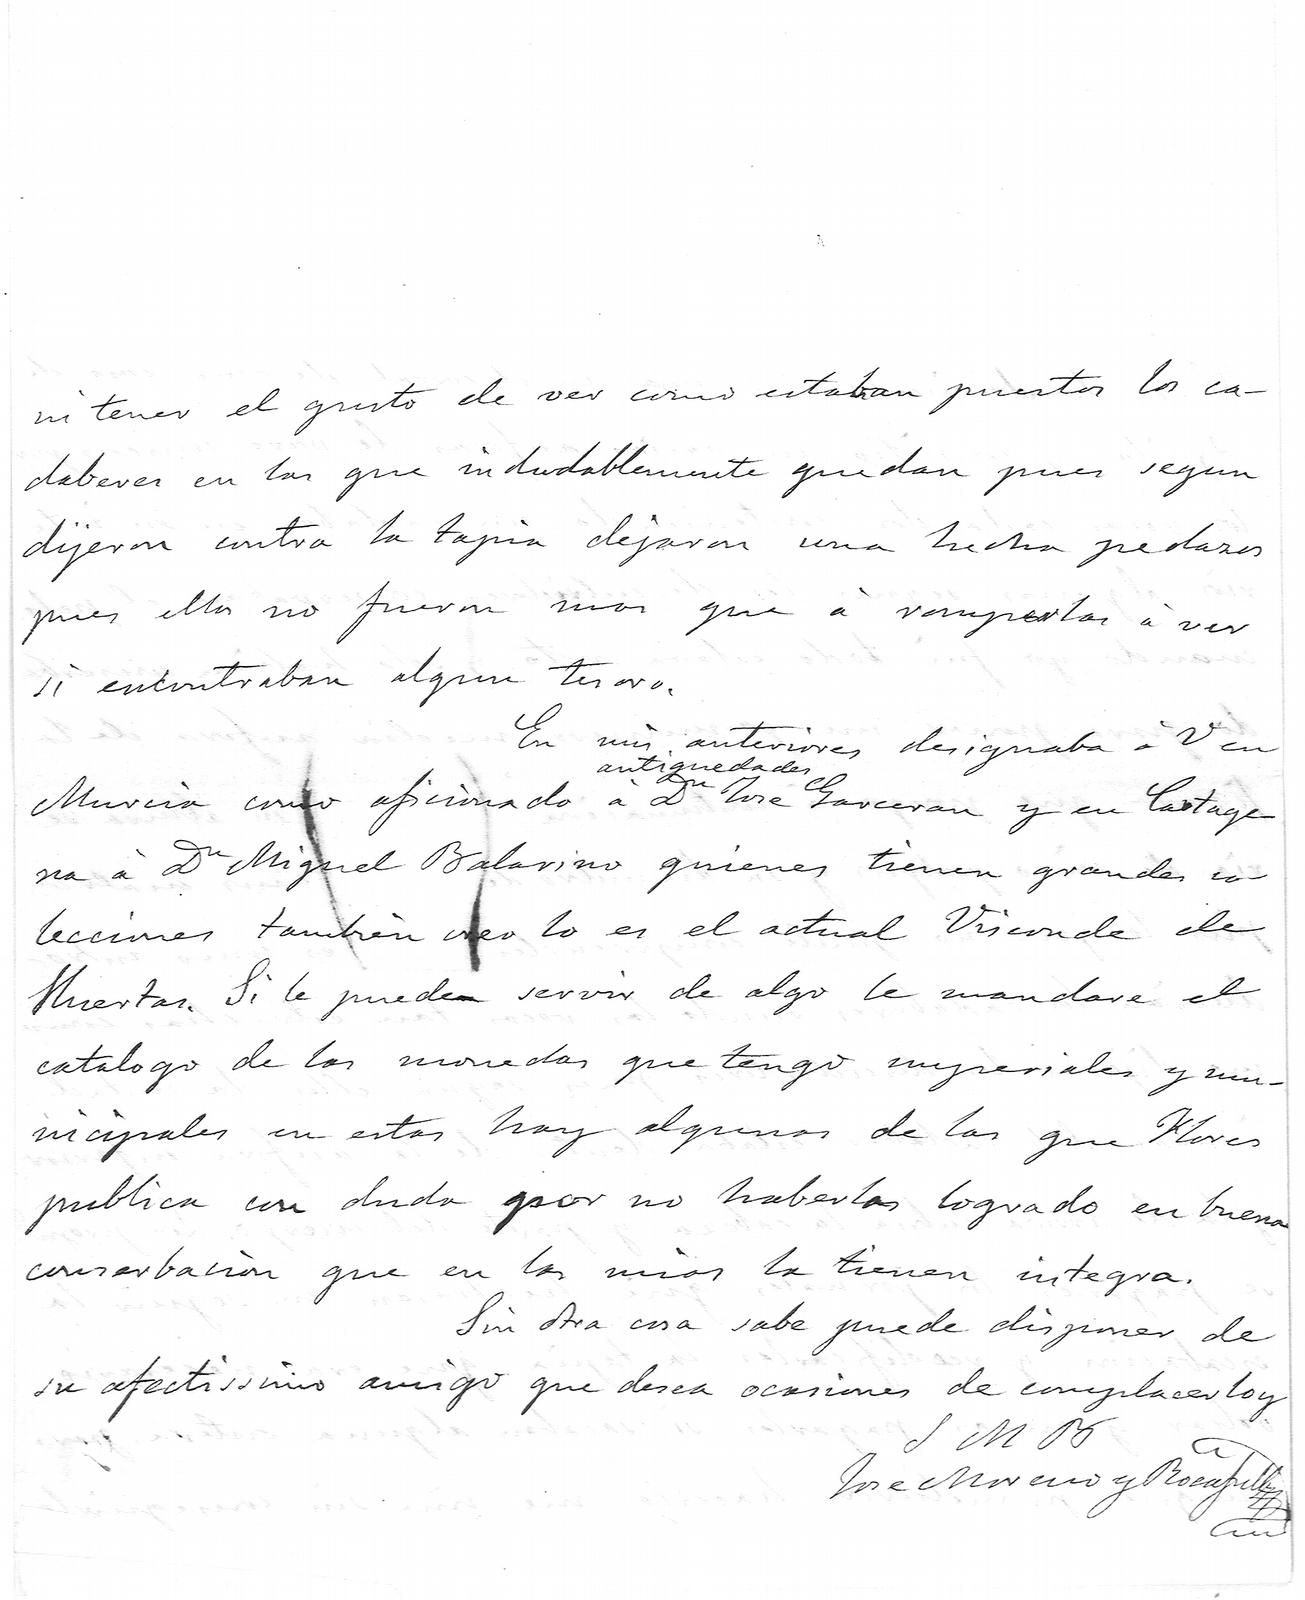 ni tener el gusto de ver como estaban puestos los ca-
daberes en las que indudablemente quedan pues segun
dijeron contra la tapia dejaron una hecha pedazos
pues ellos no fueron mas que à romperlas à ver
si encontraban algun tesoro.
En mis anteriores designaba à V en
antiguedades
Murcia como aficionado à Dn Jose Garceran y en Cartage
na à Dn Miguel Balarino quienes tienen grandes co
lecciones tambien creo lo es el actual Visconde de
Huertas. Si le puede servir de algo le mandare el
catalogo de las monedas que tengo ymperiales y mu-
nicipales en estas hay algunas de las que Flores
publica con duda por no haberlas logrado en buena
conserbacion que en las mias la tienen integra.
Sin otra cosa sabe puede disponer de
su afectissimo amigo que desea ocasiones de complacerlo y
S M B
Jose Moreno y Rocafull